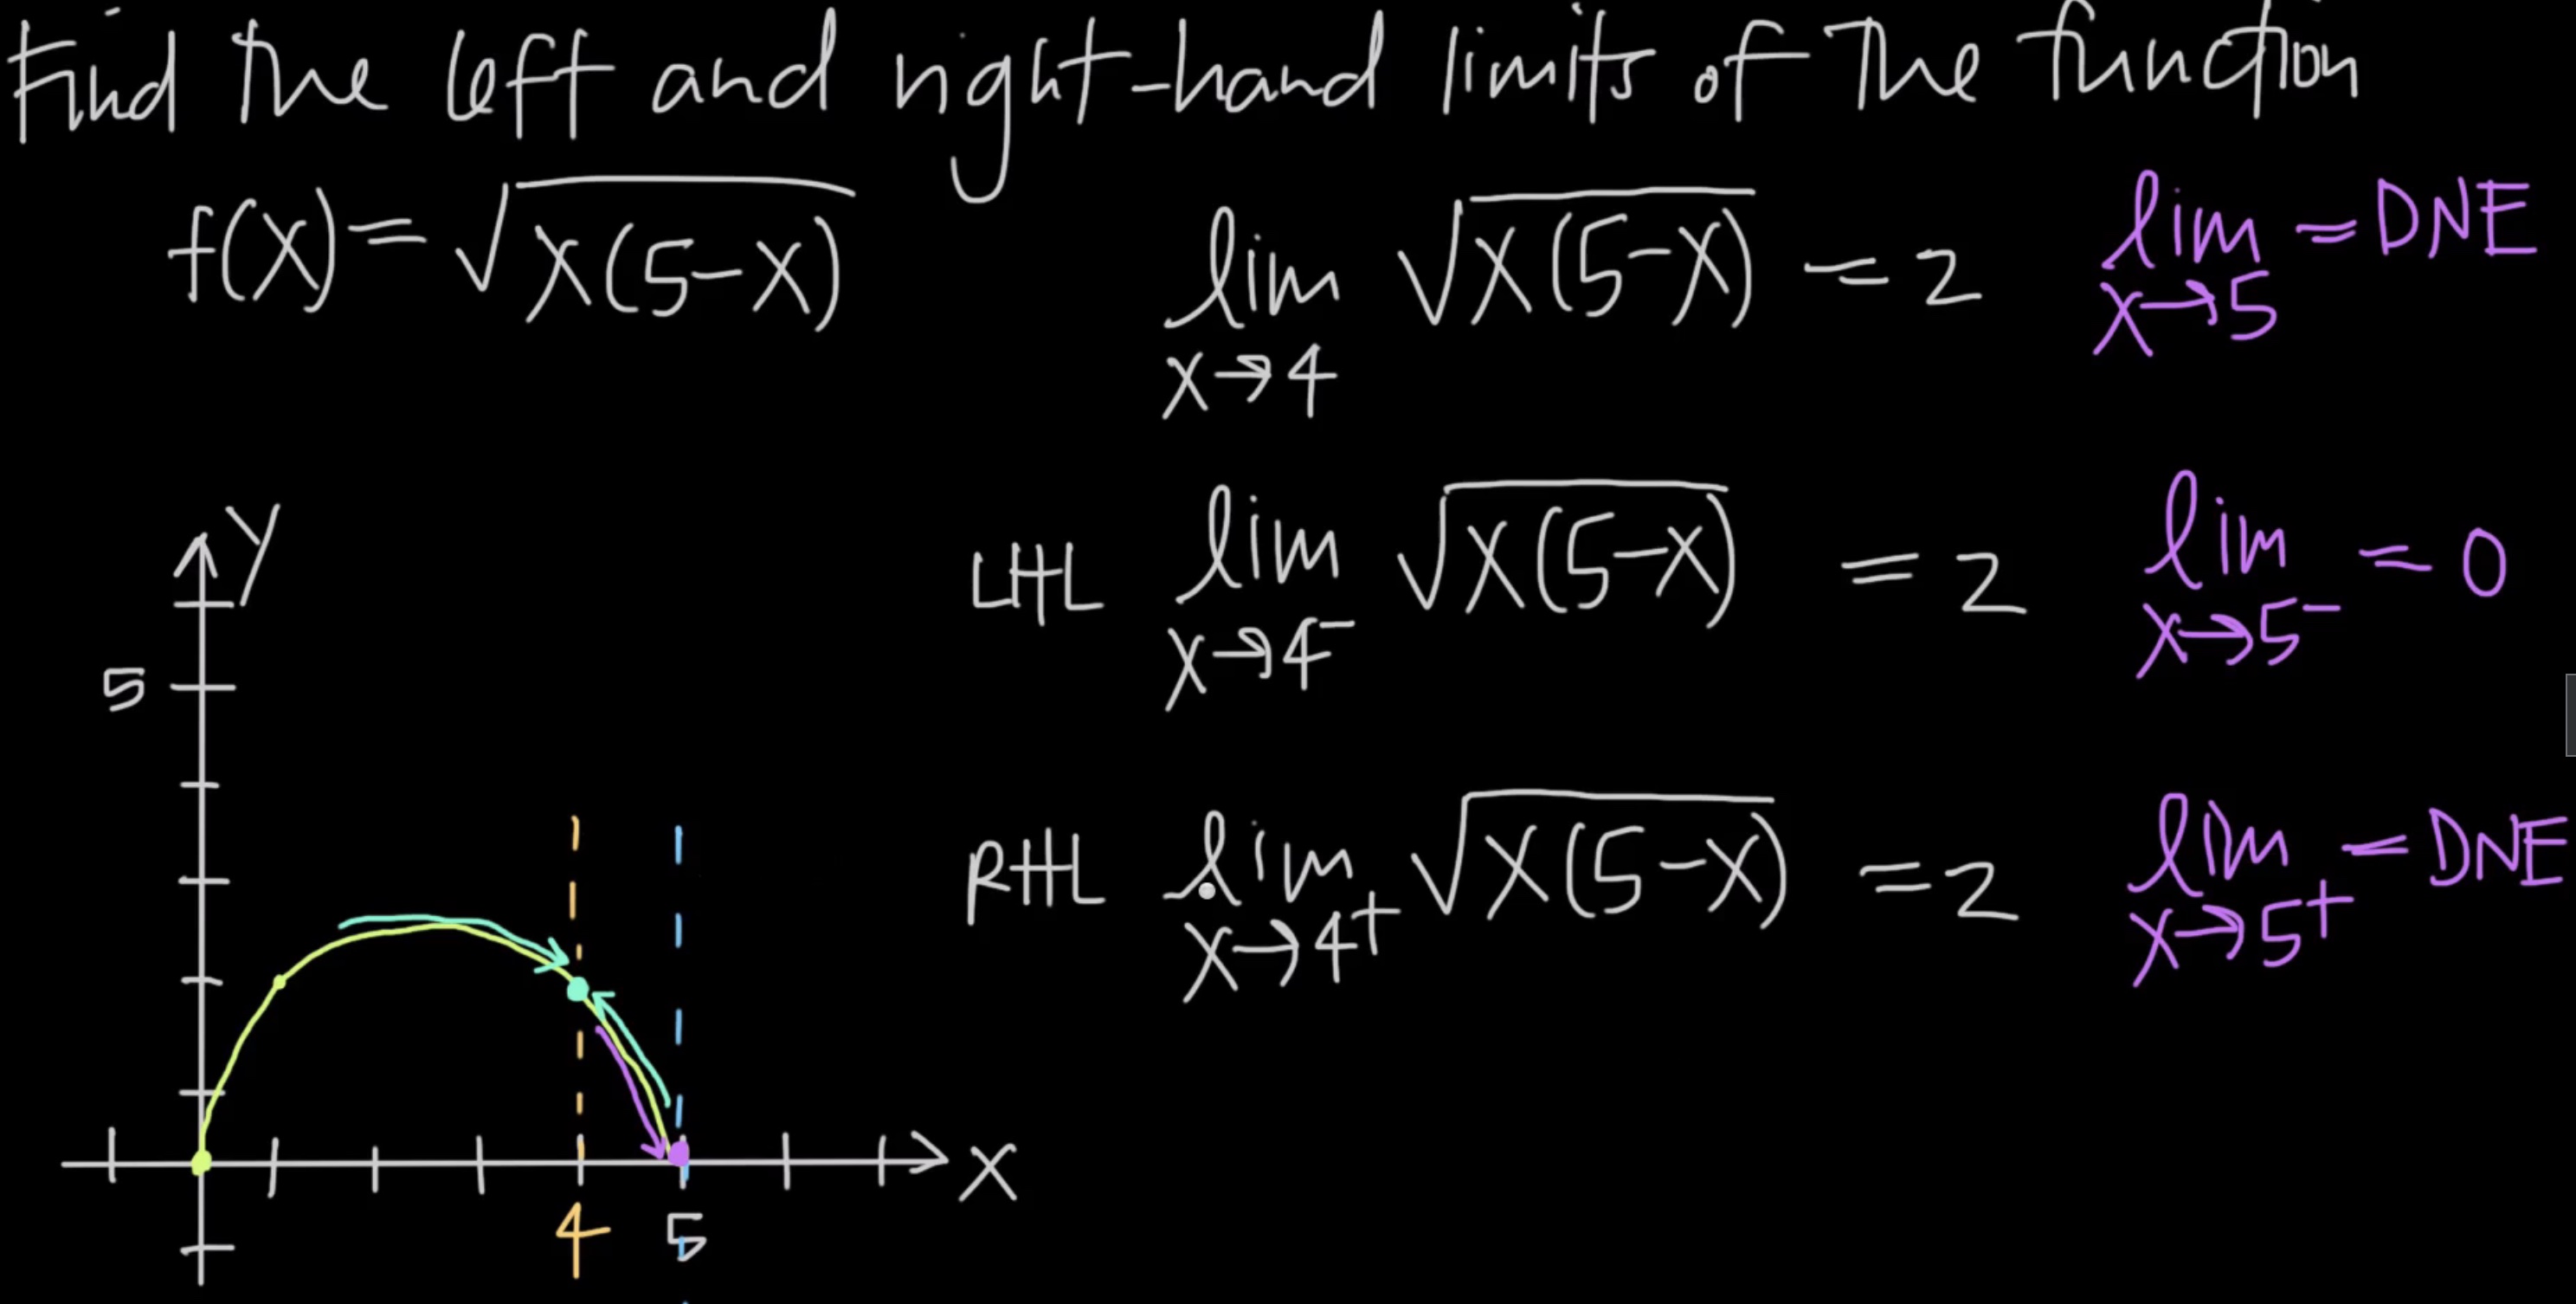 Find the left and right-hand limits of the function
f(x) = √x(5-x)
lim x→4 √x(5-x) = 2
lim x→5 = DNE
LHL lim x→4⁻ √x(5-x) = 2
lim x→5⁻ = 0
RHL lim x→4⁺ √x(5-x) = 2
lim x→5⁺ = DNE
y
5
x
4 5